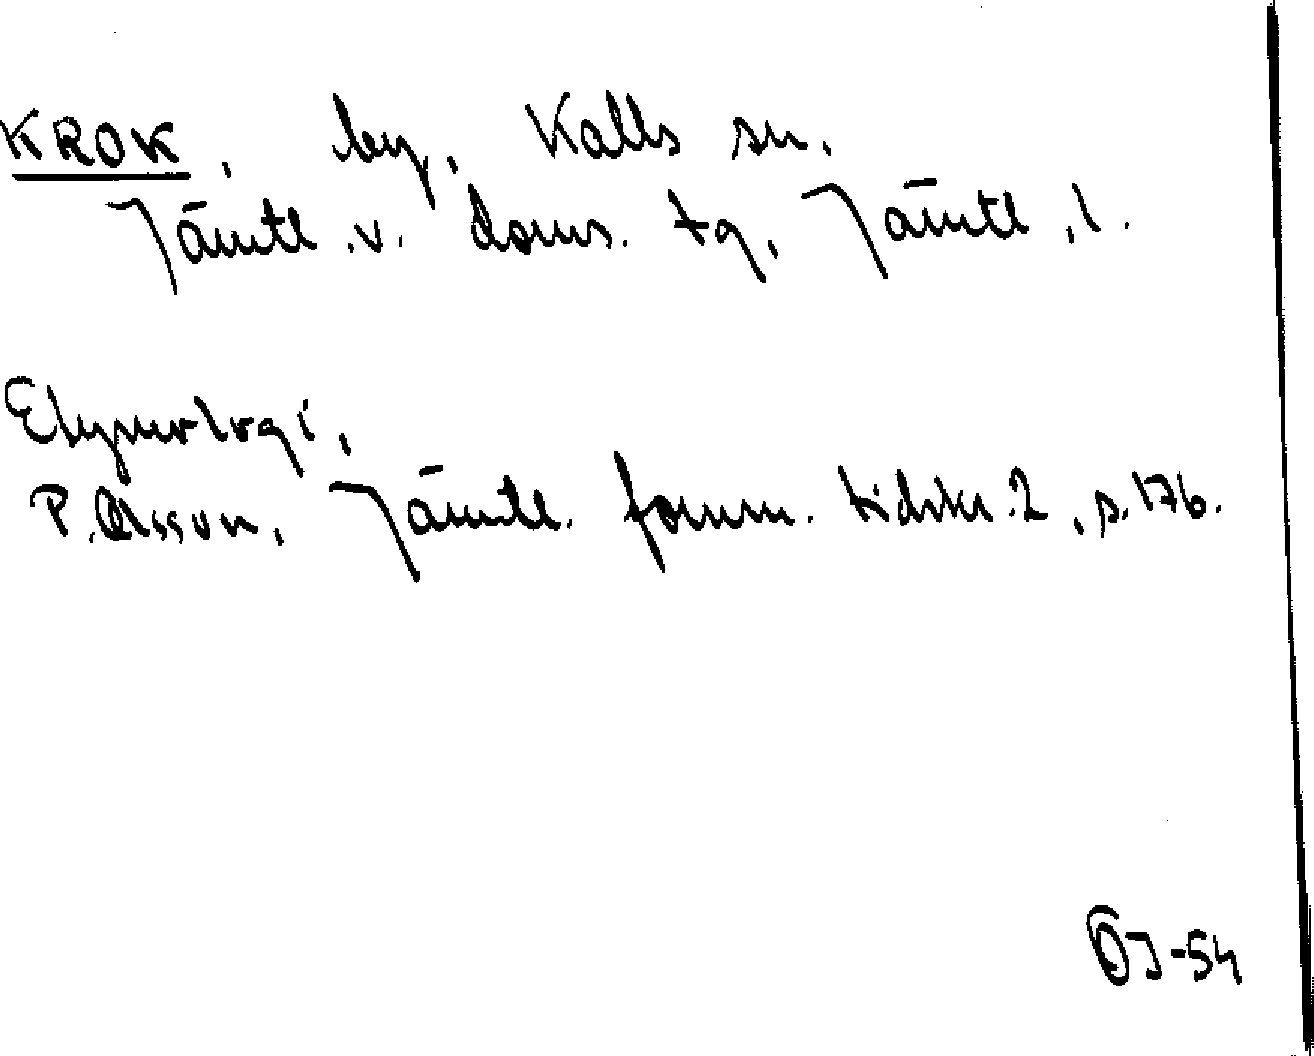 KROK, by, Kalls sn,
Jämtl. v. doms. tg, Jämtl. l.
Etymologi,
P. Olsson, Jämtl. fornm. tidskr. 2, s. 176.
ÖJ-54